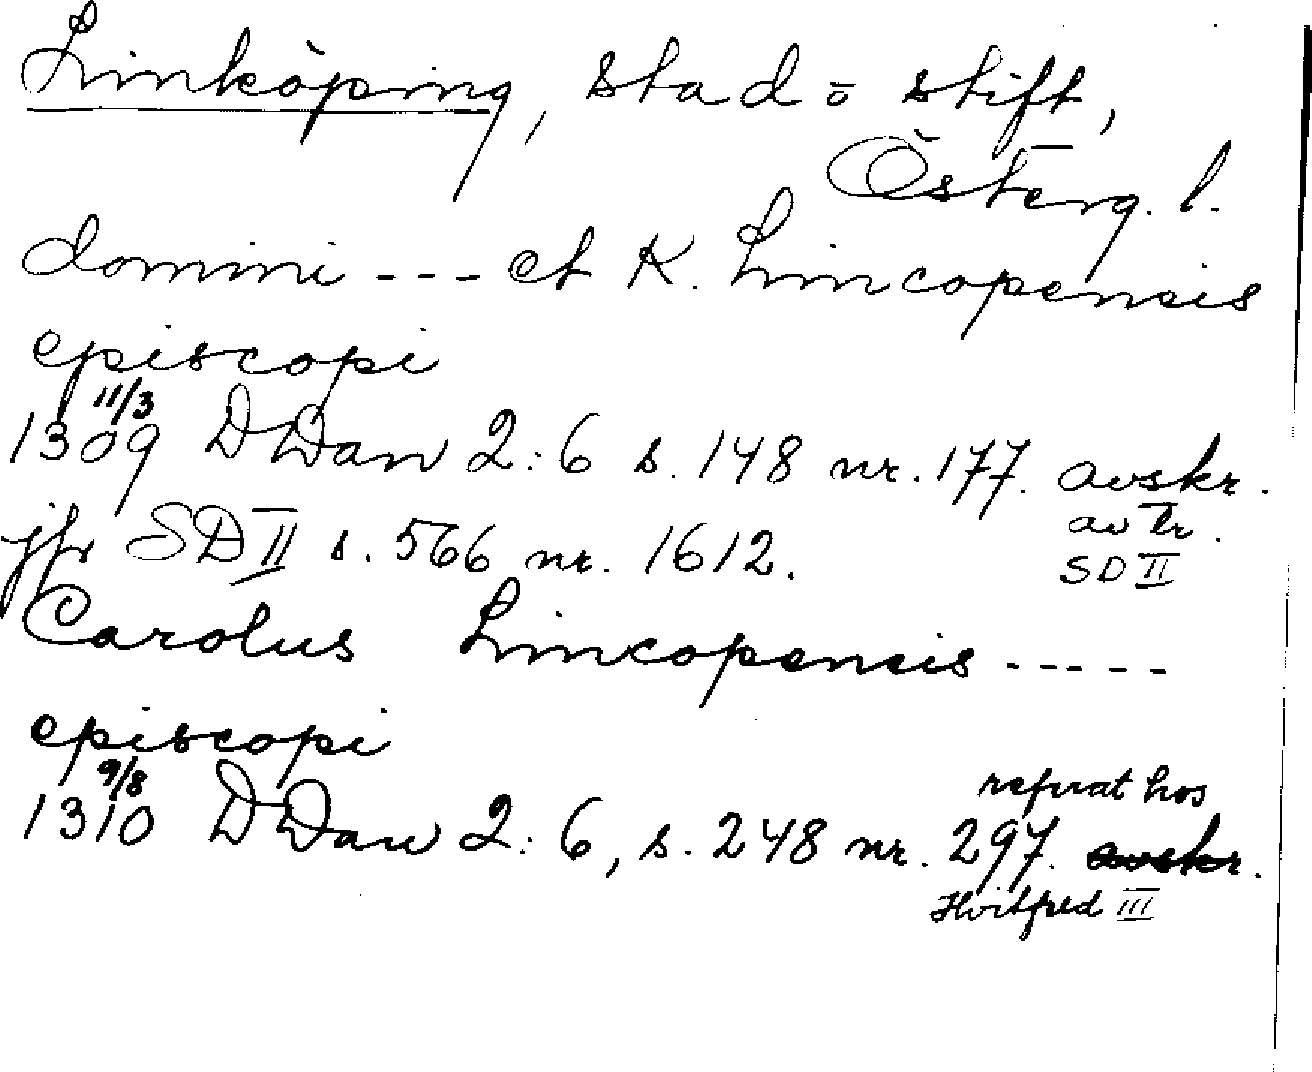 Linköping, stad o stift,
Österg. l.
domini --- et K. Lincopensis
episcopi
1309 11/3 DDan 2:6 s. 148 nr. 177. avskr.
av tr.
jfr SD II s. 566 nr. 1612. SD II
Carolus Lincopensis -----
episcopi
1310 9/8 DDan 2:6, s. 248 nr. 297. avskr.
referat hos
Hvitfeld III